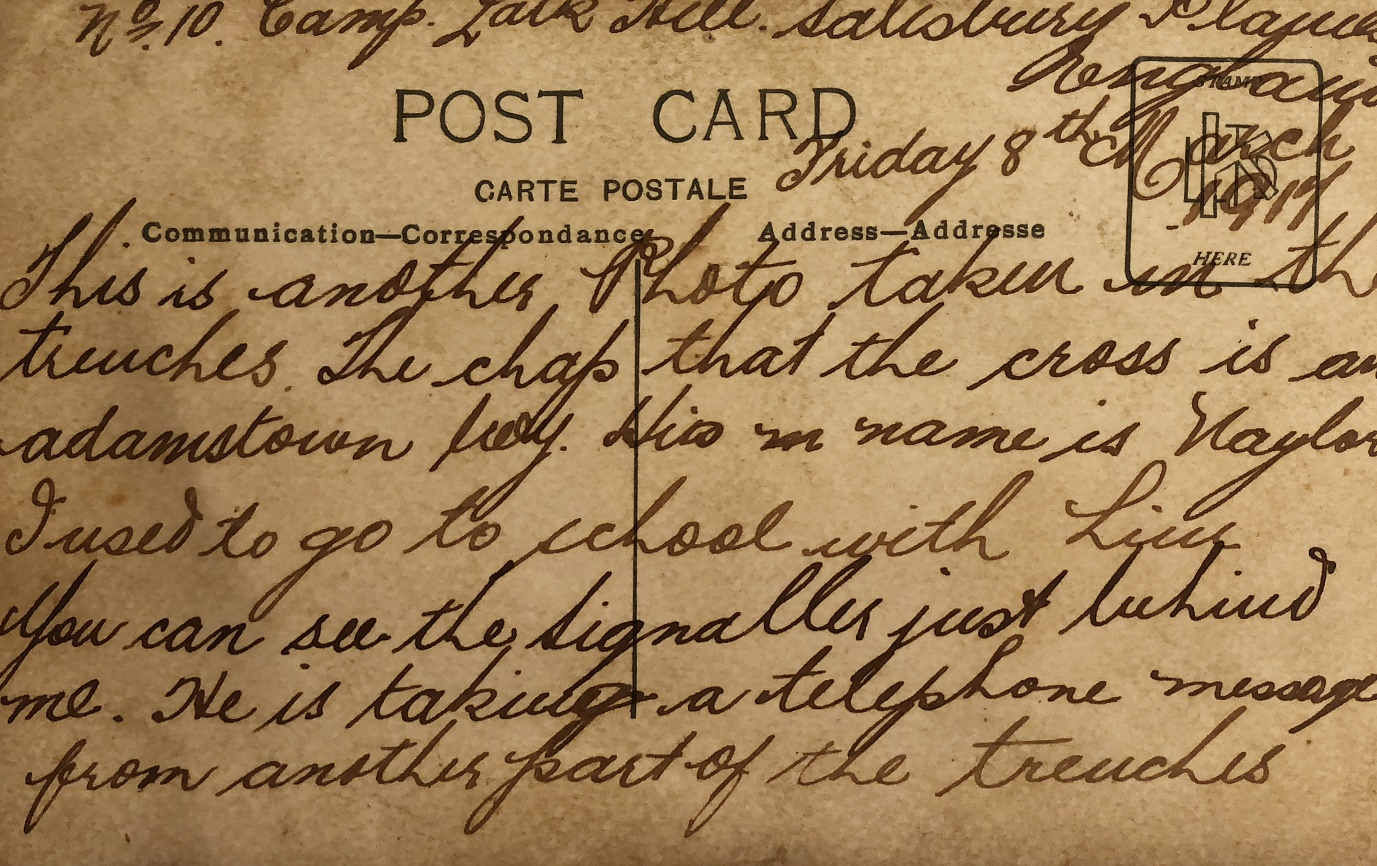 No. 10. Camp. Lark Hill. Salisbury Plains
England
POST CARD
Friday 8th March
1917
CARTE POSTALE
STAMP
HERE
Communication—Correspondance
Address—Addresse
This is another Photo taken in th
trenches. The chap that the cross is an
adamstown boy. His m name is Naylor
I used to go to school with him
You can see the signaller just behind
me. He is taking a telephone message
from another part of the trenches